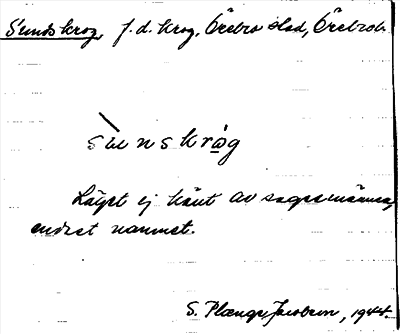 Sunds krog, f.d. krog, Örebro stad, Örebro l.
sunskrog
Läget ej känt av sagesmännen,
endast namnet.
S. Plænge Jacobson, 1944.